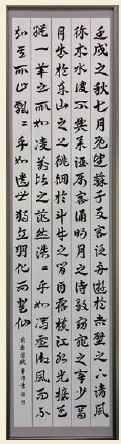 壬戌之秋七月既望蘇子与客泛舟遊於赤壁之下清風
徐來水波不興舉酒屬客誦明月之詩歌窈窕之章少焉
月出於東山之上徘徊於斗牛之間白露橫江水光接天
縱一葦之所如凌萬頃之茫然浩浩乎如馮虛御風而不
知其所止飄飄乎如遺世獨立羽化而登仙
前赤壁賦